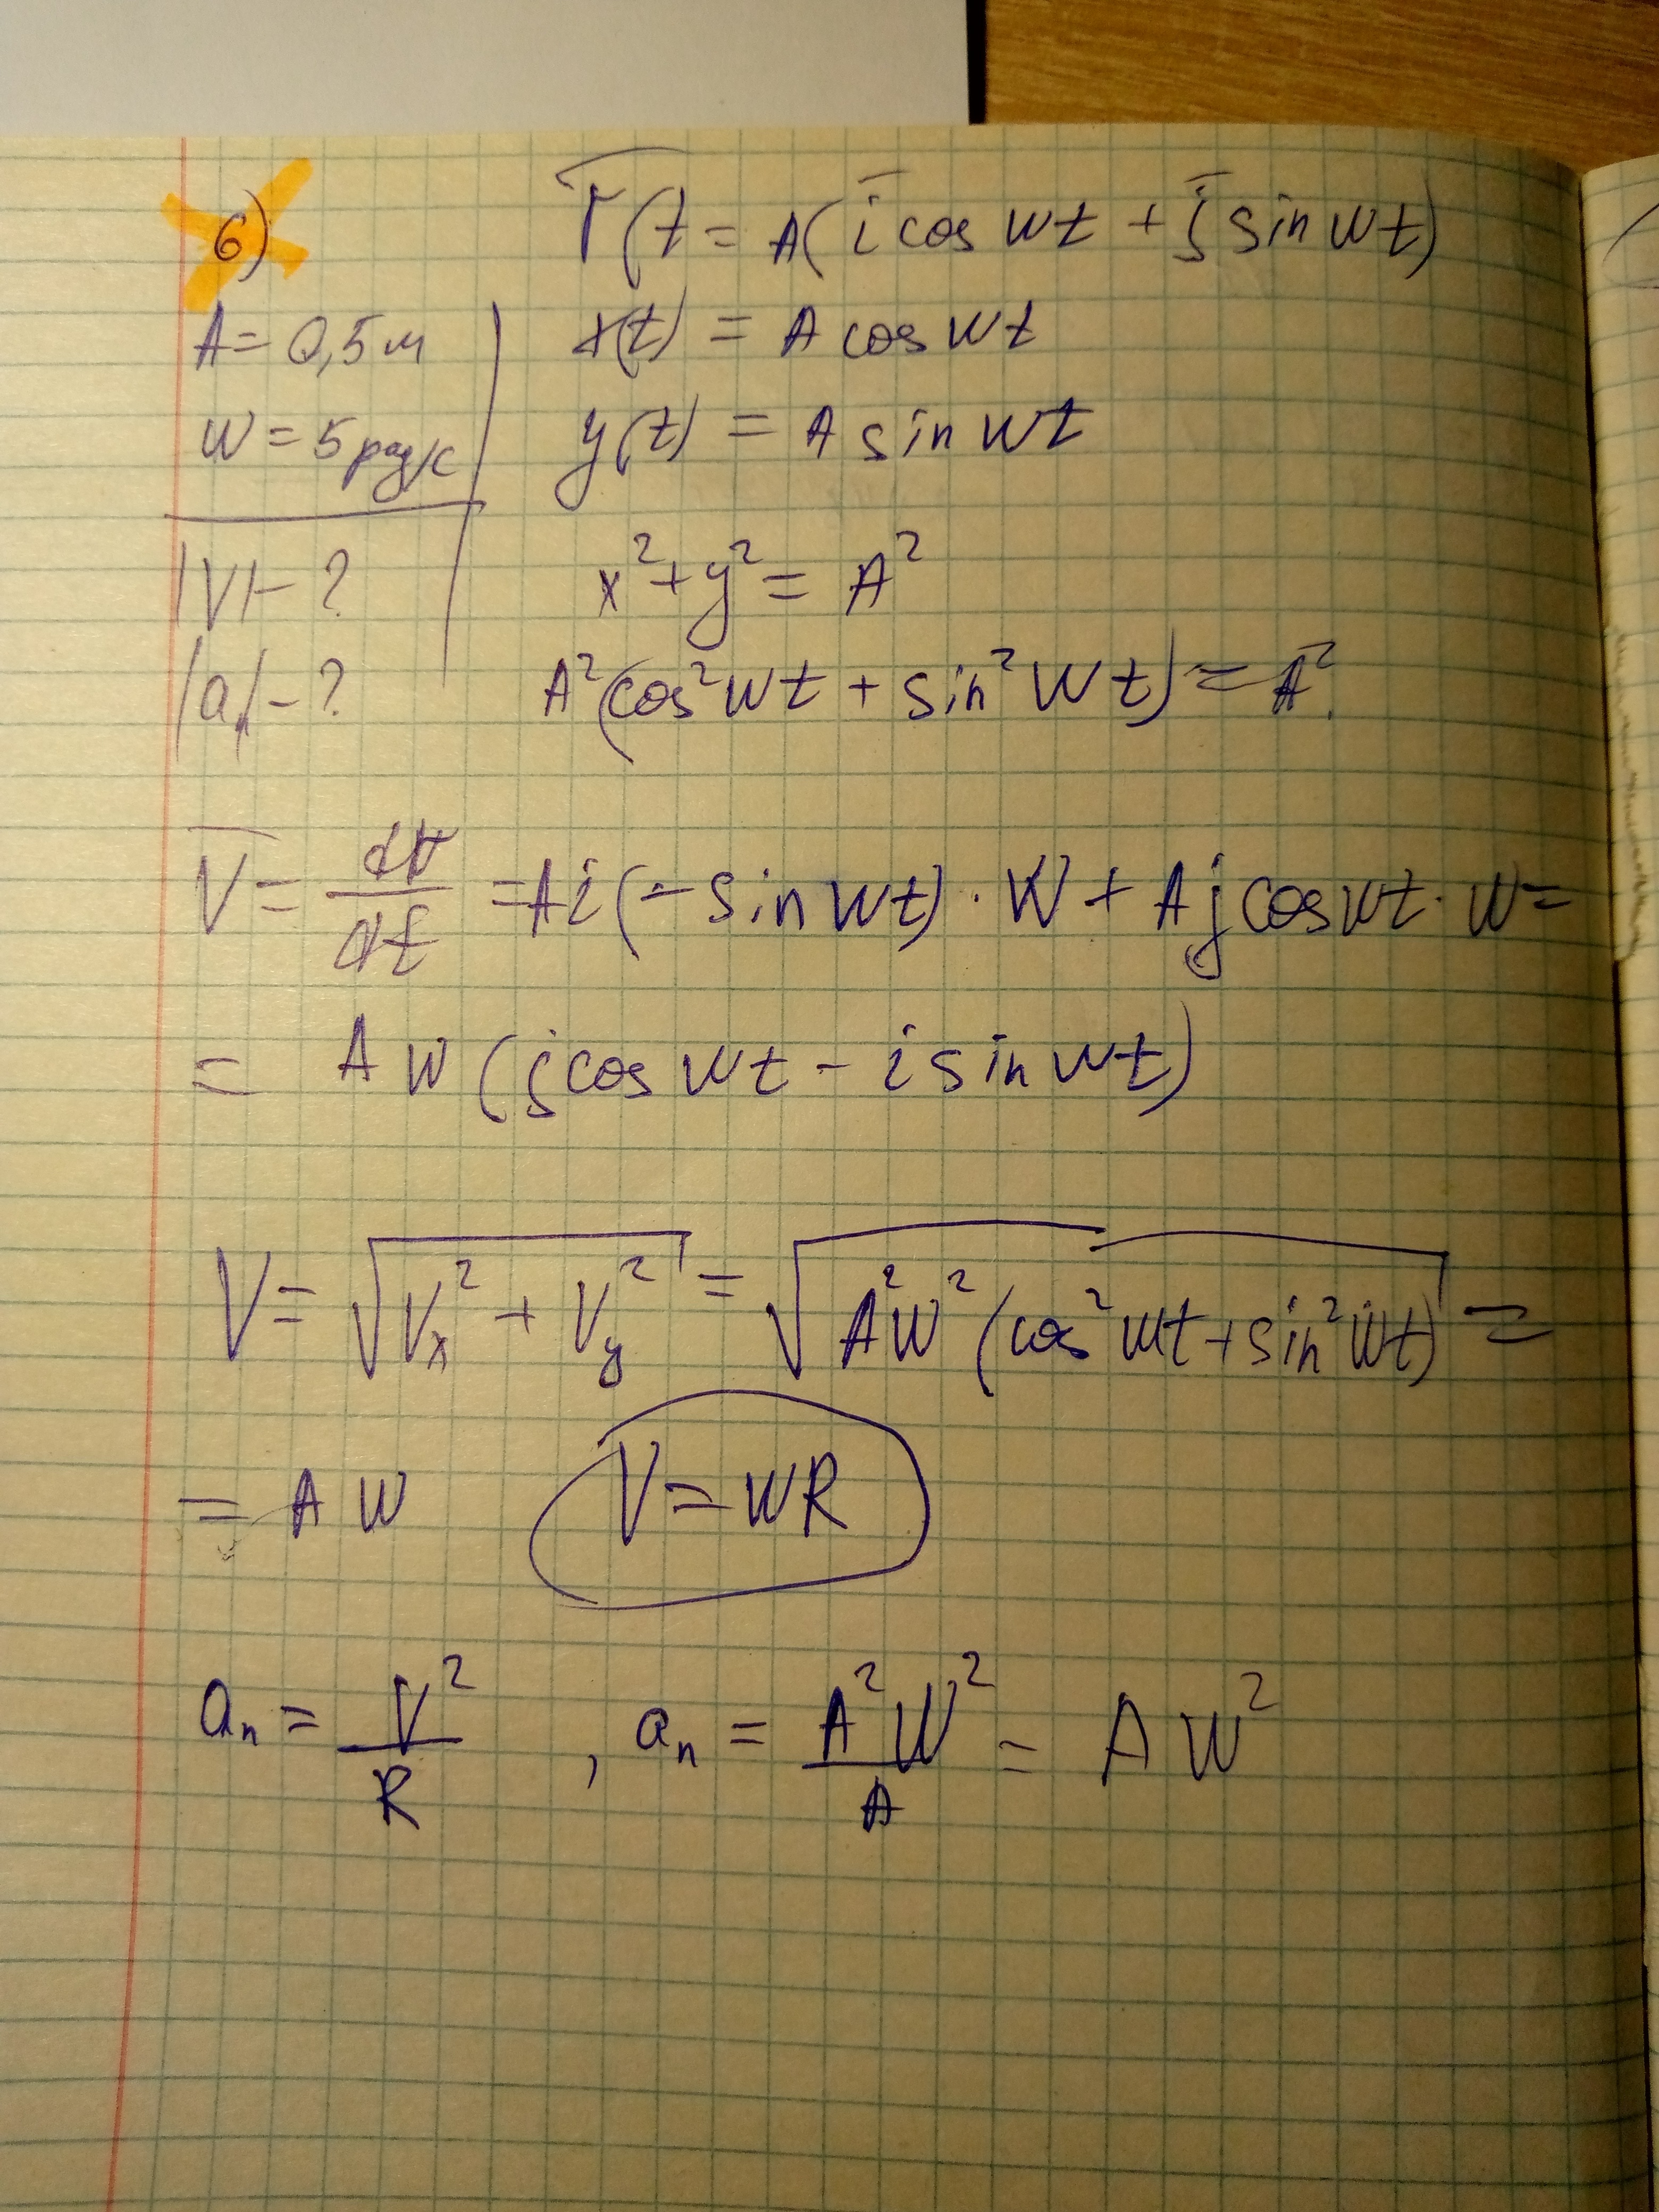 6)
r̄(t = A( ī cos wt + j̄ sin wt)
A = 0,5 м
x(t) = A cos wt
w = 5 рад/с
y(t) = A sin wt
|V| - ?
x² + y² = A²
|aₙ| - ?
A²(cos² wt + sin² wt) = A².
V̄ = dr/dt = A i (- sin wt) · w + A j cos wt · w =
= A w (j cos wt - i sin wt)
V = √(Vx² + Vy²) = √(A²w² (cos² wt + sin² wt)) =
= A w V = wR
aₙ = V²/R , aₙ = A²w²/A = A w²